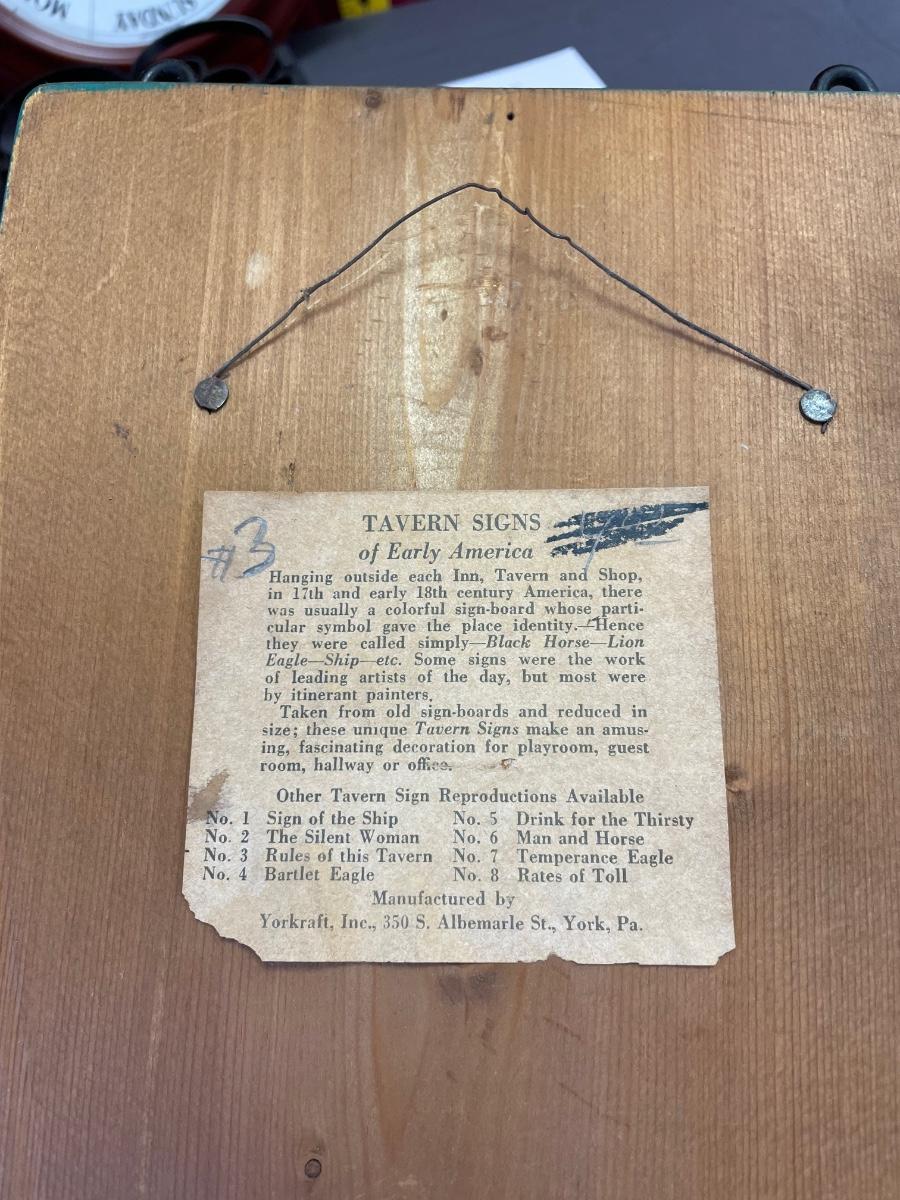 MO
SUNDAY
#3
TAVERN SIGNS
of Early America
Hanging outside each Inn, Tavern and Shop,
in 17th and early 18th century America, there
was usually a colorful sign-board whose parti-
cular symbol gave the place identity.—Hence
they were called simply—Black Horse—Lion
Eagle—Ship—etc. Some signs were the work
of leading artists of the day, but most were
by itinerant painters.
Taken from old sign-boards and reduced in
size; these unique Tavern Signs make an amus-
ing, fascinating decoration for playroom, guest
room, hallway or office.
Other Tavern Sign Reproductions Available
No. 1 Sign of the Ship No. 5 Drink for the Thirsty
No. 2 The Silent Woman No. 6 Man and Horse
No. 3 Rules of this Tavern No. 7 Temperance Eagle
No. 4 Bartlet Eagle No. 8 Rates of Toll
Manufactured by
Yorkraft, Inc., 350 S. Albemarle St., York, Pa.